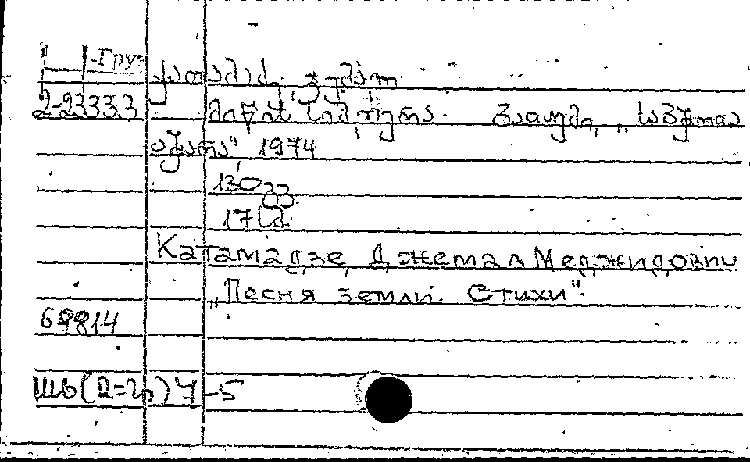 -Гру
ქათამაძე, ჯემალ
2-23333
მიწის სიმღერა. ბათუმი, „საბჭოთა
აჭარა" 1974
130 გვ
17 სმ
Катамадзе, Джемал Меджидович
„Песня земли. Стихи".
69814
Шь(2=2р)7-5